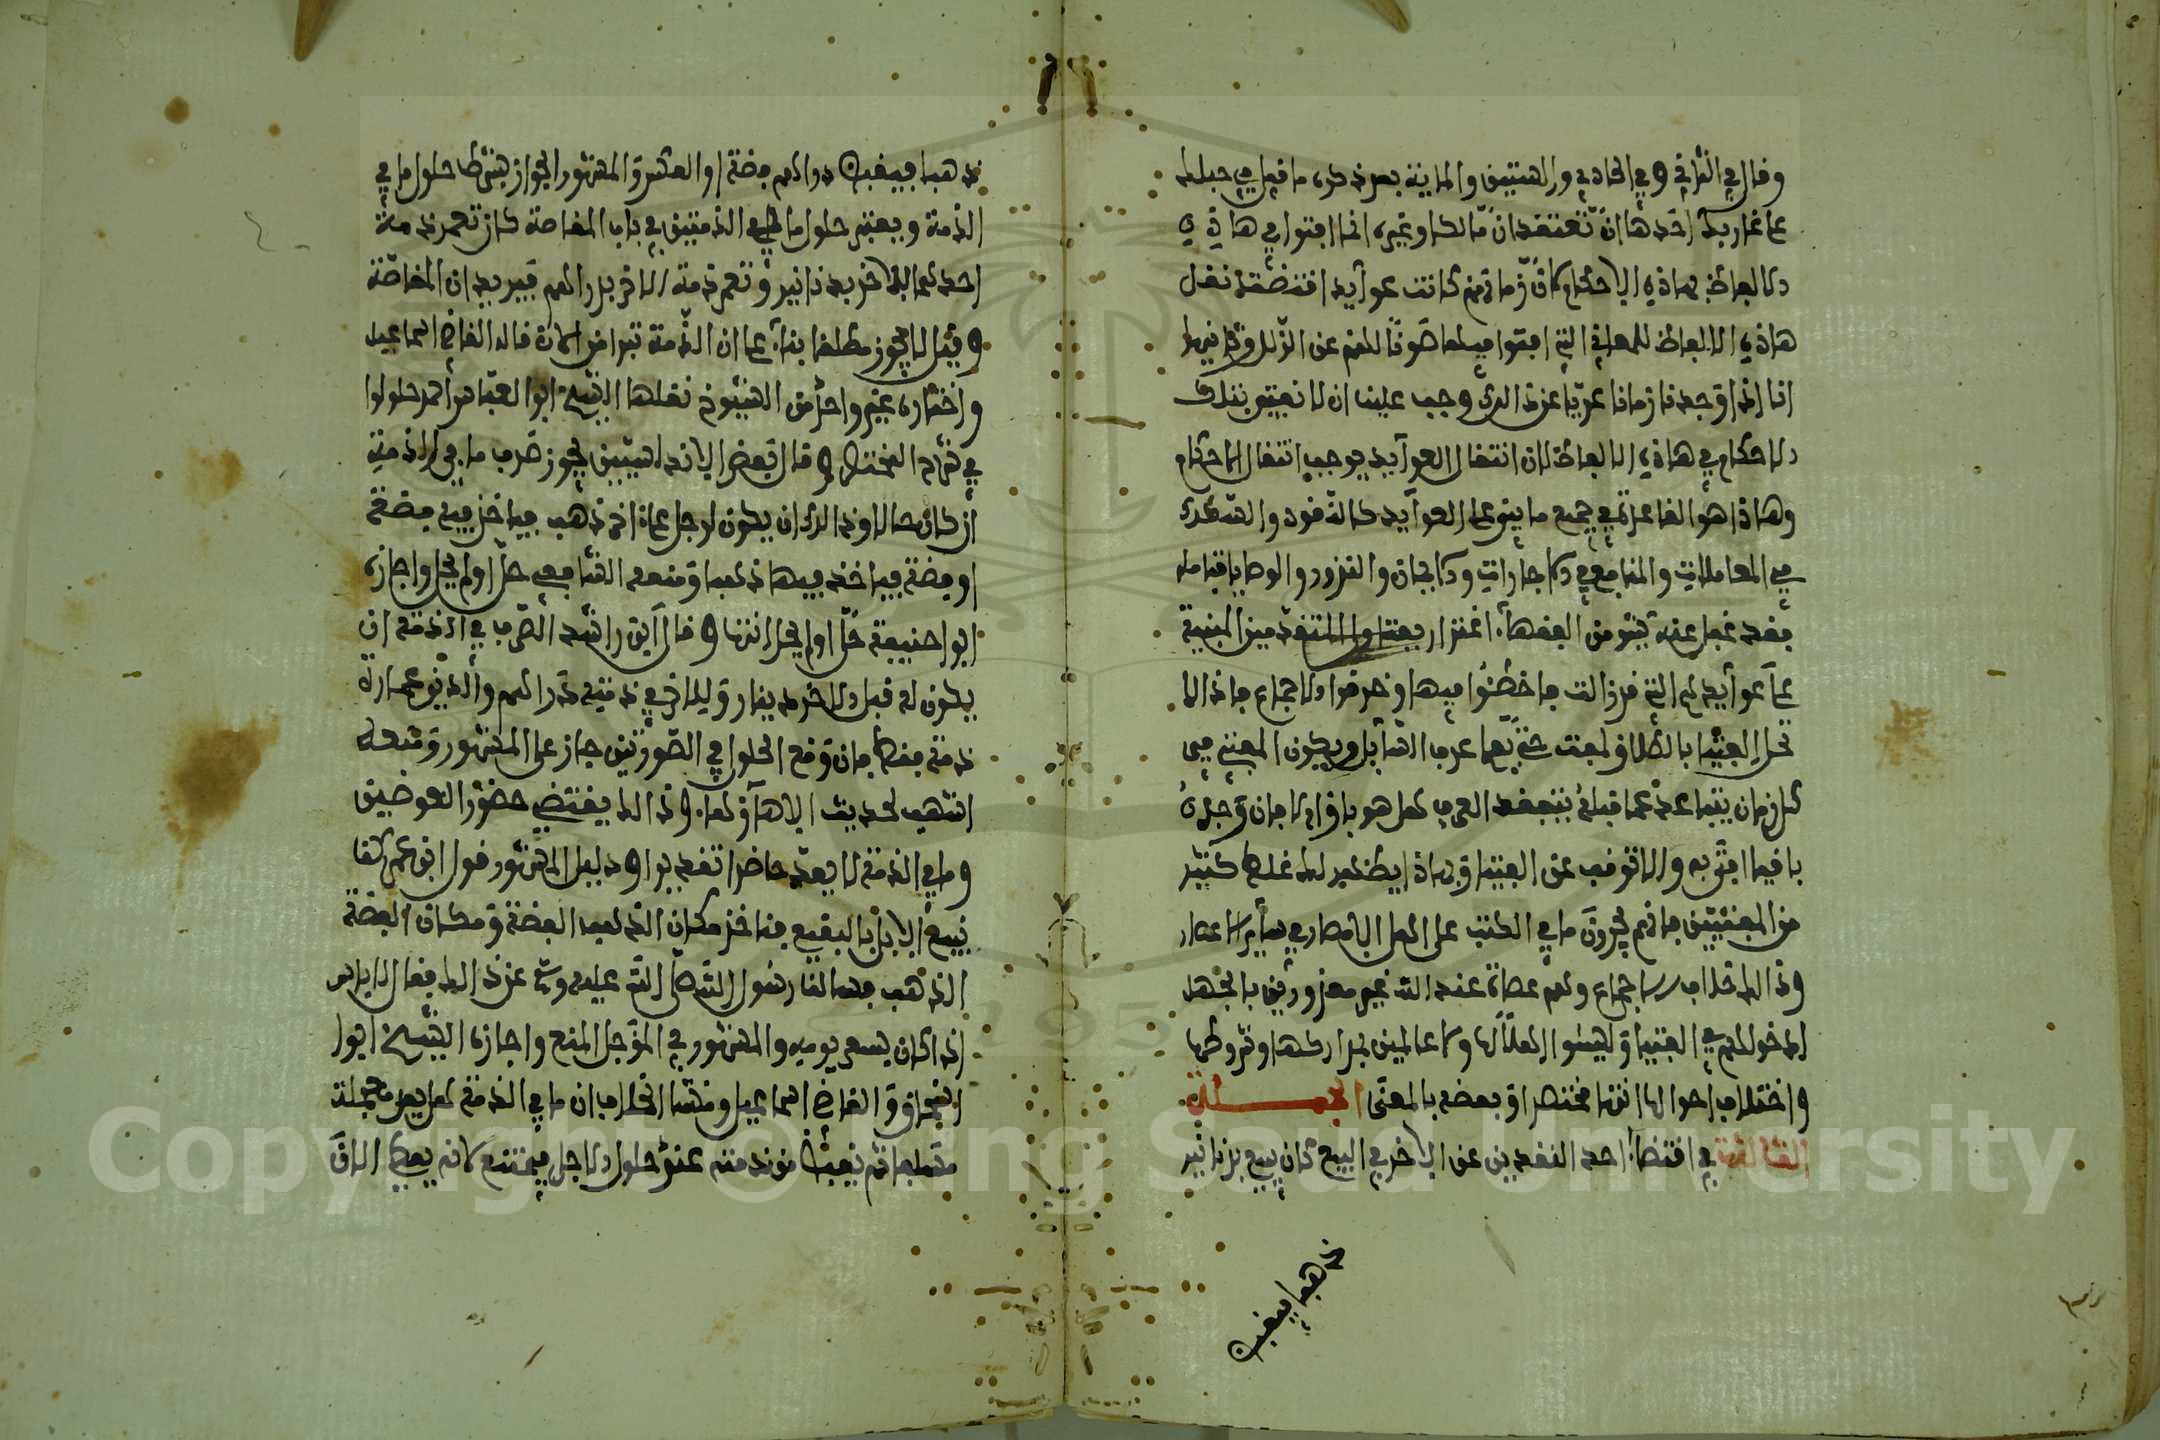 وقال القرافي في الحادي والستين والماية بعد ذكره ما قيل في حبلك
على غاربك احدها ان تعتقد ان مالكا وغيره انما افتوا في هاذه
الالفاظ بهاذه الاحكام لان زمانهم كانت عوايد اقتضت نقل
هاذه الالفاظ للمعاني التي افتوا فيها صونا لهم عن الزلل وثانيها
انا اذا وجدنا زمانا عريا عن ذالك وجب علينا ان لا نفتي بتلك
الاحكام في هاذه الالفاظ لان انتقال العوايد يوجب انتقال الاحكام
وهاذا هو القاعدة في جميع ما يبنى على العوايد كالنقود والسكك
في المعاملات والمنافع في الاجارات والايمان والنذور والوصايا فتامله
فقد غفل عنه كثير من الفقهاء اغترار بفتاوا المتقدمين المبنية
على عوايدهم التي قد زالت فاخطئوا فيها وخرقوا الاجماع فاذا لا
تحل الفتيا بالطلاق لمعت حتى يعلم عرف السايل ويكون المفتي في
كل زمان يتباعد عما قبله يتفقد العرف هل هو باق ام لا فان وجده
باقيا افتى به والا توقف عن الفتيا وبهاذا يظهر لك غلط كثير
من المفتيين فانهم يجرون ما في الكتب على اهل الامصار في ساير الاعصار
وذالك خلاف الاجماع وهم عصاة عند الله غير معذورين بالجهل
لدخولهم في الفتيا وليسوا اهلا لها ولا عالمين بمداركها وشروطها
واختلاف احوالها انتهى مختصرا وبعضه بالمعنى الجملة
الثالثة في اقتضاء احد النقدين عن الاخر في البيع كان يبيع بدنانير
ذهبا فيقبض
ذهبا فيقبض دراهم فضة او العكس والمشهور الجواز بشرط حلول ما في
الذمة ويعتبر حلول ما في الذمتين في باب المقاصة كان تعمر ذمة
احدهما للاخر بدنانير وتعمر ذمة الاخر بدراهم فيريدان المقاصة
وقيل لا يجوز مطلقا بناء على ان الذمة تبرا من الان قاله القاضي اسماعيل
واختاره غير واحد من الشيوخ نقلها الشيخ ابو العباس احمد حلولوا
في شرح المختصر وقال بعض الاندلسيين يجوز صرف ما في الذمة
ان كان حالا وذالك ان يكون لرجل على اخر ذهب فياخذ فيه فضة
او فضة فياخذ فيها ذهبا ومنعه الشافعي حل اولم يحل واجازه
ابو حنيفة حل اولم يحل انتهى وقال ابن راشد الصرف في الذمة ان
يكون له قبل الاخر دينار وللاخر في ذمته دراهم والدين عمارة
ذمة فقط فان وقع الحلول في الصورتين جاز على المشهور ومنعه
اشهب لحديث الا هاء وهاء وذالك يقتضي حضور العوضين
وما في الذمة لا يعد حاضرا تقديرا ودليل المشهور قول ابن عمر كنا
نبيع الابل بالبقيع فناخذ مكان الذهب الفضة ومكان الفضة
الذهب فسالنا رسول الله صلى الله عليه وسلم عن ذالك فقال لا باس
اذا كان بسعر يومه والمشهور في المؤجل المنع واجازه الشيخ ابو ا
اسحاق والقاضي اسماعيل ومنشا الخلاف ان ما في الذمة هل يعد معجلة
مقبلها ثم يقبض من ذمته عند حلول الاجل فيمتنع لانه يعطي الان